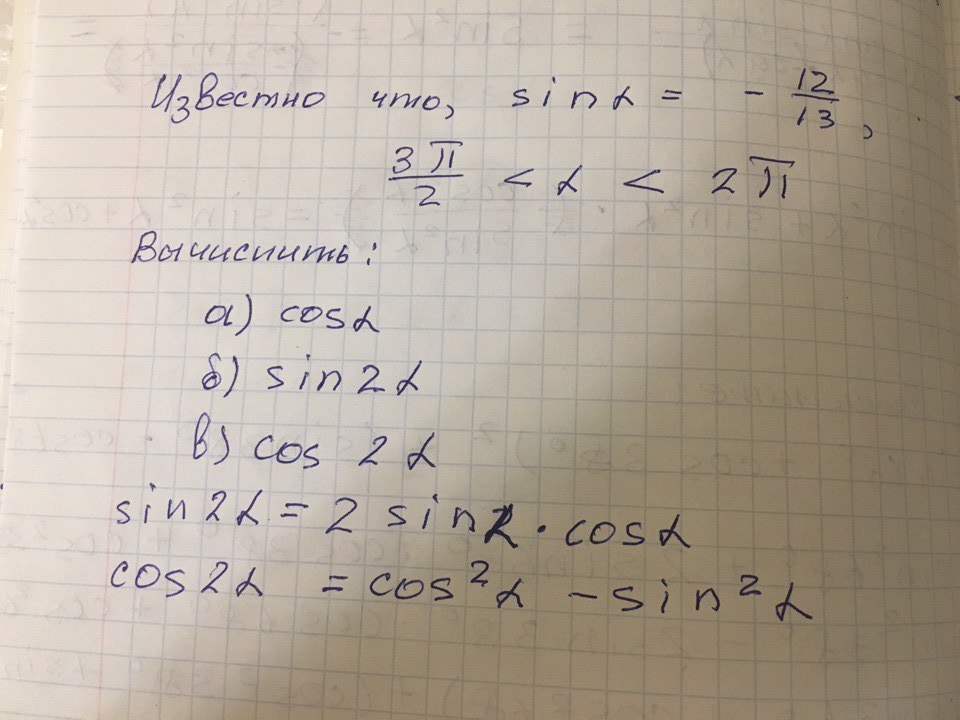 Известно что, sin α = - 12/13,
3π/2 < α < 2π
Вычислить:
а) cos α
б) sin 2α
в) cos 2α
sin 2α = 2 sin α · cos α
cos 2α = cos² α - sin² α